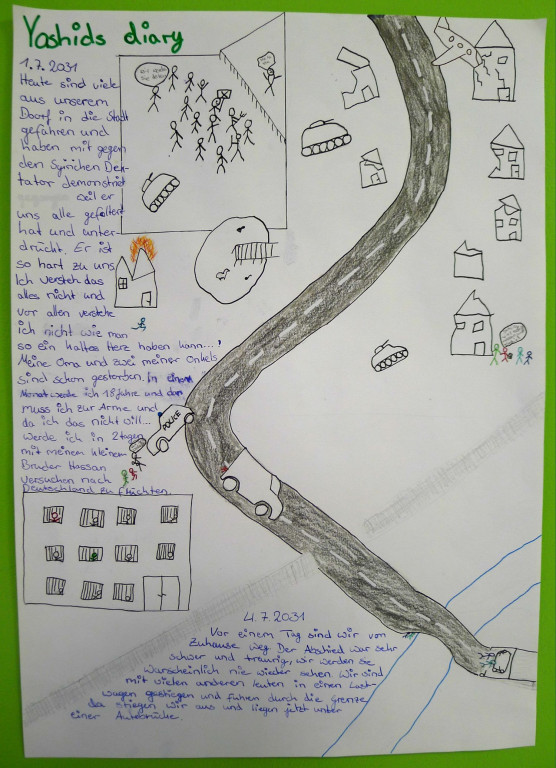 Yoshids diary
1.7.2031
Heute sind viele
aus unserem
Doorf in die Stadt
gefahren und
haben mit gegen
den Syrichen Dek-
tator demonstriert
weil er
uns alle gefoltert
hat und unter-
drückt. Er ist
so hart zu uns
Ich versteh das
alles nicht und
vor allen verstehe
ich nicht wie man
so ein kaltes Herz haben kann...!
Meine Oma und zwei meiner Onkels
sind schon gestorben. In einem
Monat werde ich 18 Jahre und dan
muss ich zur Arme und
da ich das nicht will...
werde ich in 2 tagen
mit meinem kleinem
Bruder Hassan
versuchen nach
Deutschland zu flüchten.
POLICE
4.7.2031
Vor einem Tag sind wir von
zuhause weg. Der Abschied war sehr
schwer und traurig, wir werden sie
warscheinlich nie wieder sehen. Wir sind
mit vielen anderen leuten in einen Last-
wagen gestiegen und fuhren durch die Grenze
da stiegen wir aus und liegen jetzt unter
einer Autobrücke.